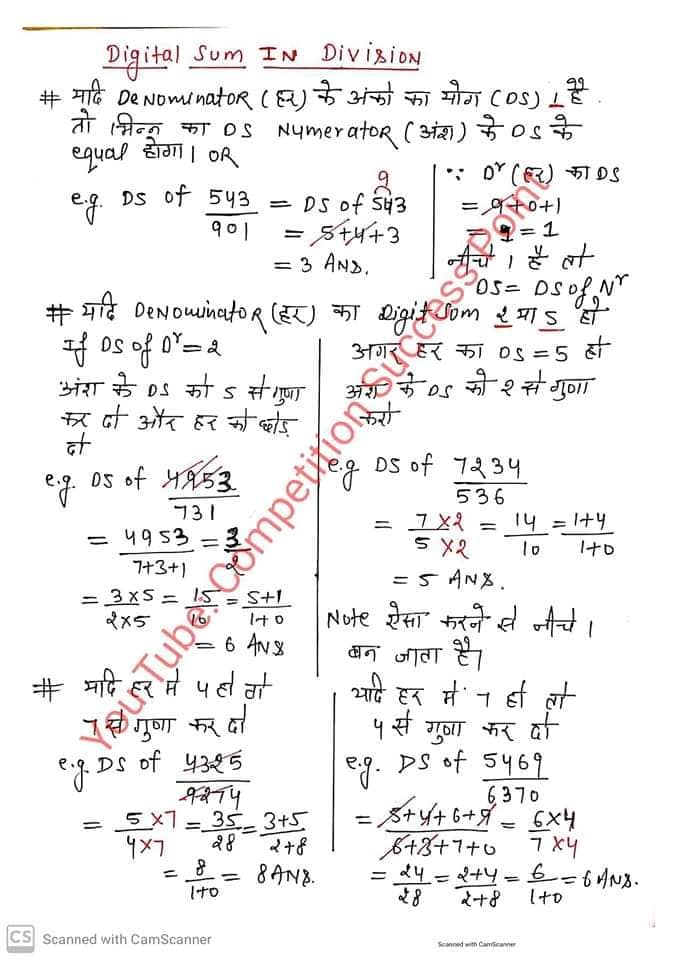 Digital Sum IN Division
# यदि DeNominatoR (हर) के अंको का योग (DS) 1 है
तो भिन्न का DS NumeratoR (अंश) के DS के
equal होगा। OR
e.g. DS of 543/901 = DS of 543
9
= 5+4+3
= 3 ANS.
∵ Dʳ (हर) का DS
= 9+0+1
= 1 = 1
नीचे 1 है तो
DS = DS of Nʳ
# यदि DeNominatoR (हर) का Digit Sum 2 या 5 हो
If DS of Dʳ = 2
अंश के DS को 5 से गुणा
कर दो और हर को छोड़
दो
e.g. DS of 4953/731
= 4953/7+3+1 = 3/2
= 3×5/2×5 = 15/10 = 5+1/1+0
= 6 ANS
अगर हर का DS = 5 हो
अंश के DS को 2 से गुणा
करो
e.g DS of 7234/536
= 7×2/5×2 = 14/10 = 1+4/1+0
= 5 ANS.
Note ऐसा करने से नीचे 1
बन जाता है।
# यदि हर मे 4 हो तो
7 से गुणा कर दो
e.g. DS of 4325/9274
= 5×7/4×7 = 35/28 = 3+5/2+8
= 8/1+0 = 8 ANS.
यदि हर मे 7 हो तो
4 से गुणा कर दो
e.g. DS of 5469/6370
= 5+4+6+9/6+3+7+0 = 6×4/7×4
= 24/28 = 2+4/2+8 = 6/1+0 = 6 ANS.
YouTube: Competition Success Point
CS Scanned with CamScanner
Scanned with CamScanner